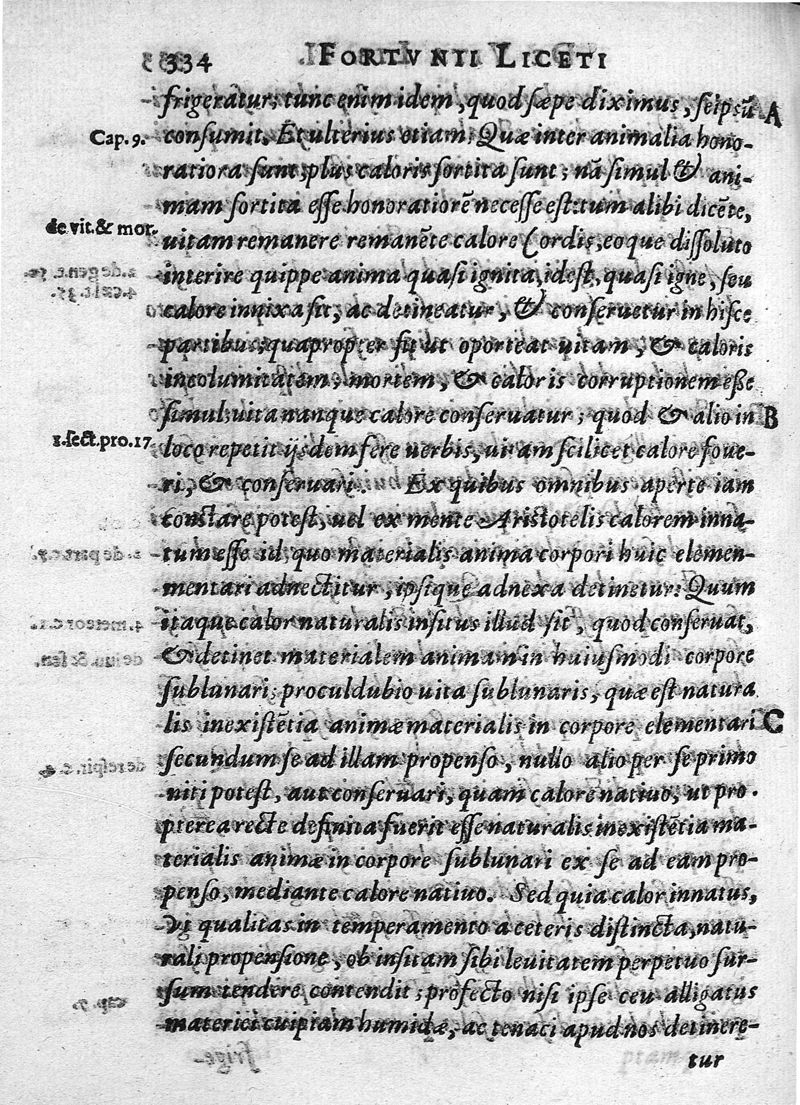 334 FORTVNII LICETI
frigeratur; tunc enim idem, quod sæpe diximus, seipsũ A
Cap. 9. consumit. Et ulterius etiam. Quæ inter animalia hono-
ratiora sunt, plus caloris sortita sunt; nã simul & ani-
mam sortita esse honoratiorẽ necesse est: tum alibi dicẽte,
de vit. & mor. uitam remanere remanẽte calore Cordis, eoque dissoluto
interire quippe anima quasi ignita, idest, quasi igne, seu
calore innixa sit, ac detineatur, & conseruetur in hisce
partibus; quapropter fit ut oporteat uitam, & caloris
incolumitatem; mortem, & caloris corruptionem esse
simul: uita nanque calore conseruatur; quod & alio in B
1. sect. pro. 17 loco repetit ijsdem fere uerbis, uitam scilicet calore foue-
ri, & conseruari. Ex quibus omnibus aperte iam
constare potest, uel ex mente Aristotelis calorem inna-
tum esse id, quo materialis anima corpori huic elemen-
mentari adnectitur, ipsique adnexa detinetur: Quum
itaque calor naturalis insitus illud sit, quod conseruat,
& detinet materialem animam in huiusmodi corpore
sublunari; proculdubio uita sublunaris, quæ est natura
lis inexistẽtia animæ materialis in corpore elementari C
secundum se ad illam propenso, nullo alio per se primo
niti potest, aut conseruari, quam calore natiuo, ut pro
pterea recte definita fuerit esse naturalis inexistẽtia ma-
terialis animæ in corpore sublunari ex se ad eam pro-
penso, mediante calore natiuo. Sed quia calor innatus,
Vi qualitas in temperamento a ceteris distincta, natu-
rali propensione, ob insitam sibi leuitatem perpetuo sur-
sum tendere contendit; profecto nisi ipse ceu alligatus
materiei cuipiam humidæ, ac tenaci apud nos detinere-
tur